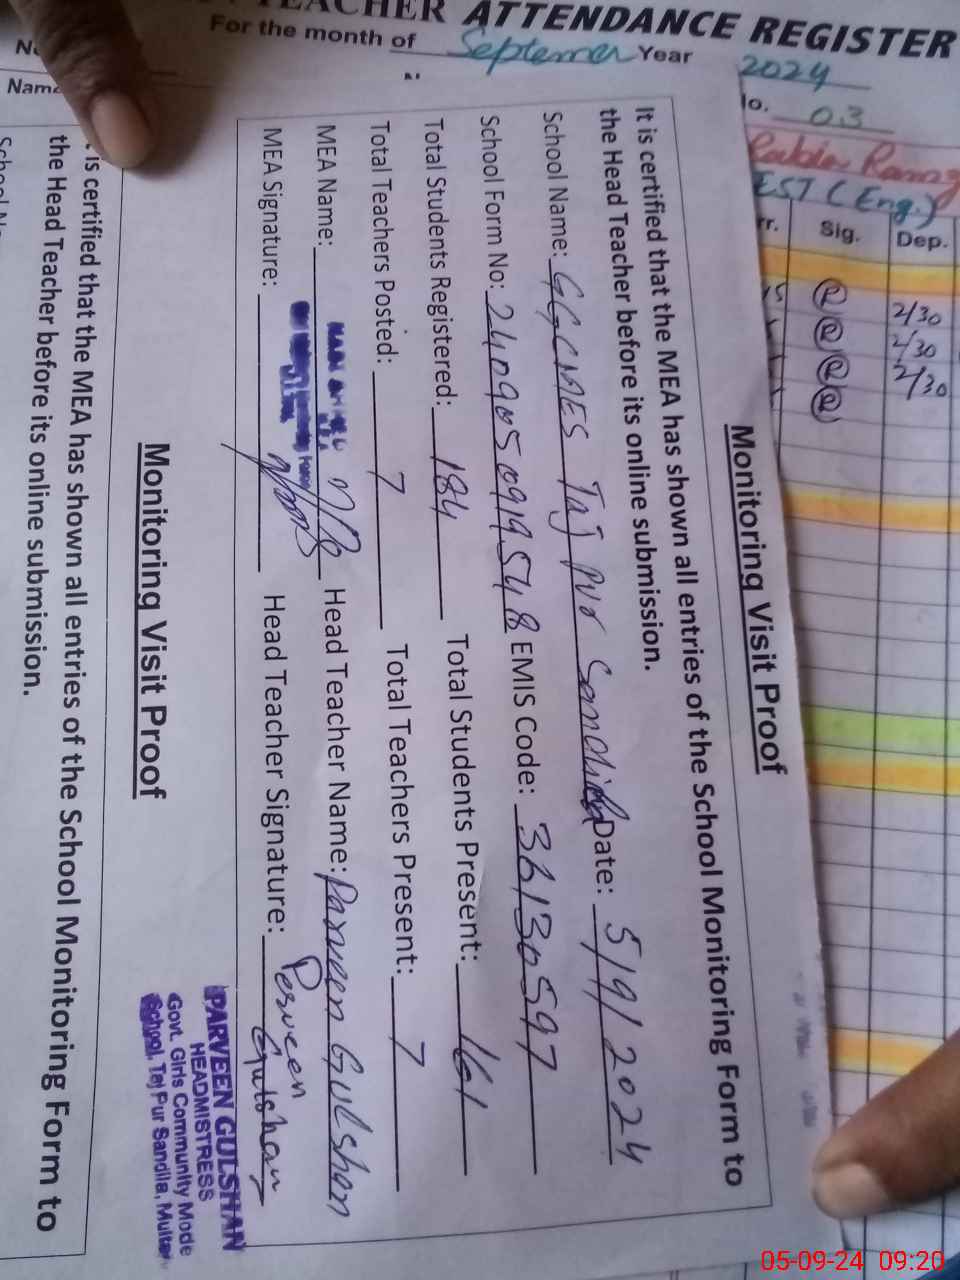 TEACHER ATTENDANCE REGISTER
For the month of Septemer Year 2024
No. 03
Rabia
EST (Eng.)
Sig. Dep.
2/30
2/30
2/30
Monitoring Visit Proof
It is certified that the MEA has shown all entries of the School Monitoring Form to
the Head Teacher before its online submission.
School Name: GGCMES Taj Pur Sandila Date: 5/9/2024
School Form No: 2409050919548 EMIS Code: 36136597
Total Students Registered: 184 Total Students Present: 161
Total Teachers Posted: 7 Total Teachers Present: 7
MEA Name: Head Teacher Name: Parveen Gulshan
MEA Signature: Head Teacher Signature: Perveen Gulshan
PARVEEN GULSHAN
HEADMISTRESS
Govt. Girls Community Mode
School, Taj Pur Sandila, Multan
Monitoring Visit Proof
is certified that the MEA has shown all entries of the School Monitoring Form to
the Head Teacher before its online submission.
05-09-24 09:20